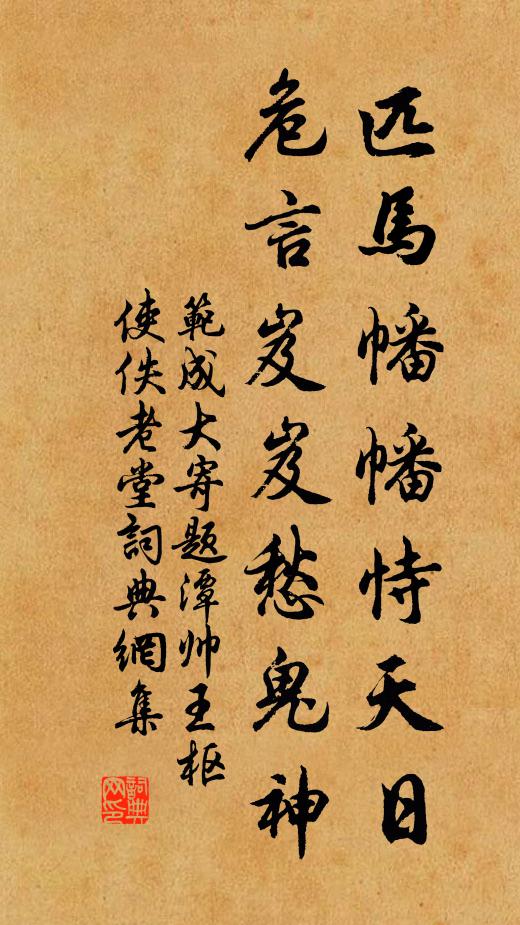 匹馬幡幡恃天日
危言岌岌愁鬼神
範成大寄題潭帅王枢
使佚老堂詞典網集
詞典网印